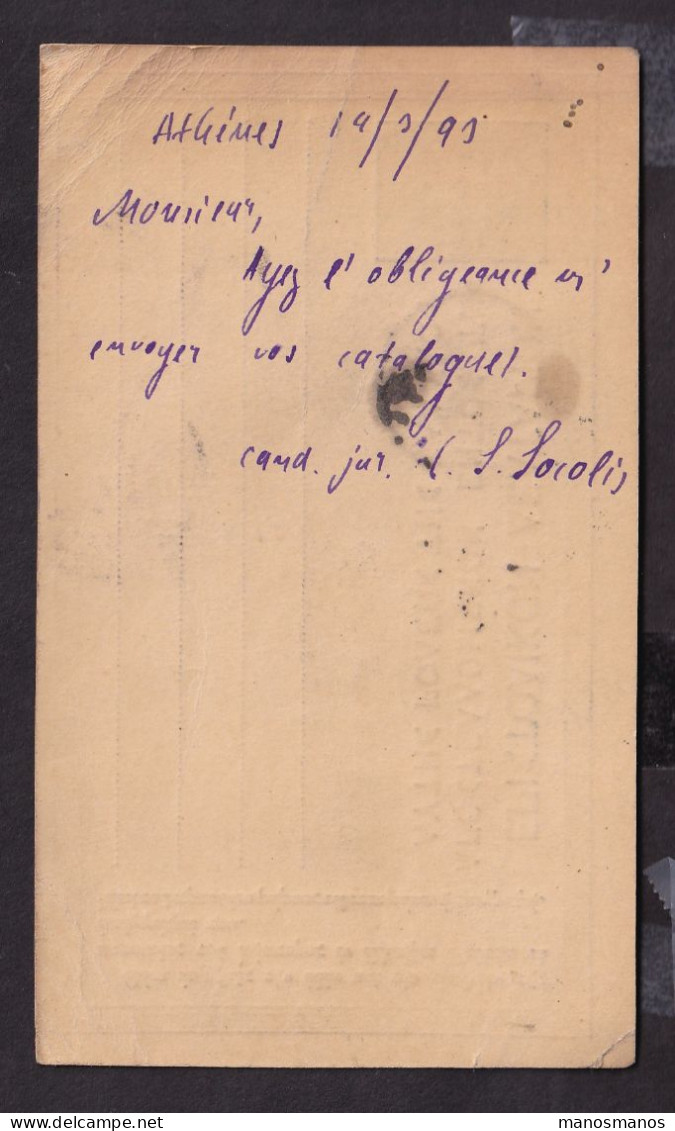 Athénes 14/3/93
Monsieur,
Ayez l'obligeance m'
envoyer vos catalogues.
cand. jur. C. S. Socolis
manosmanos